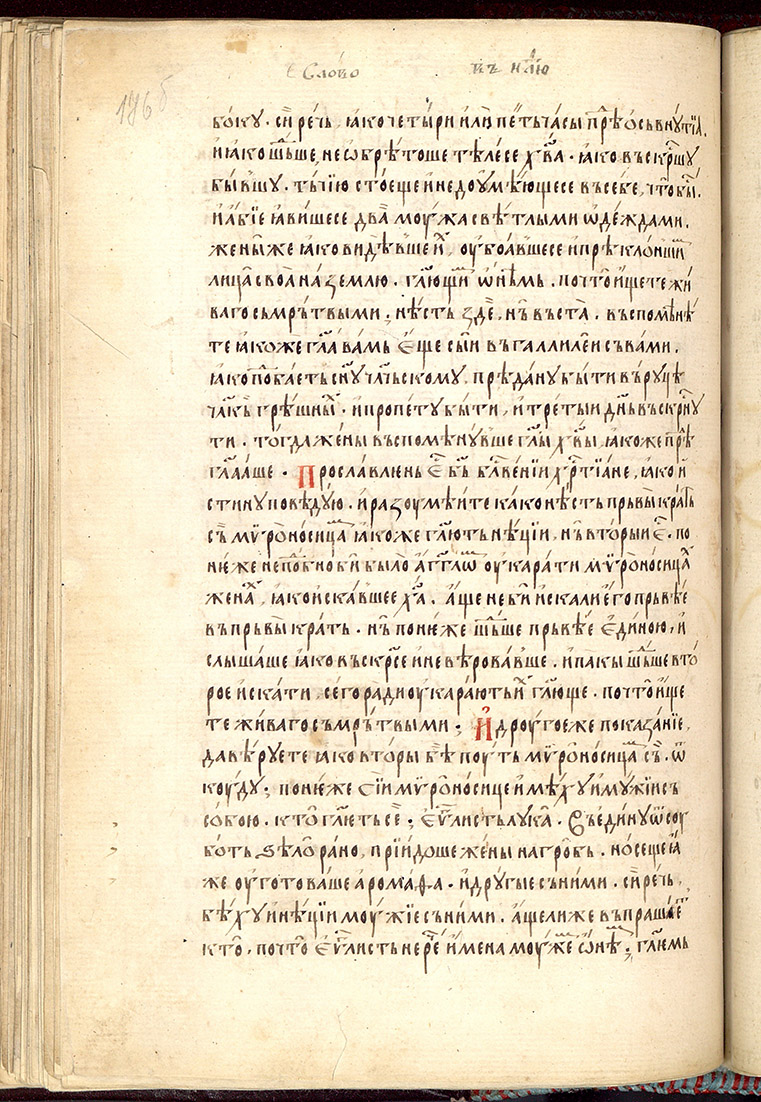 Сло́во въ н҃лю
186 б
боку . си́ речь , ꙗко четы́ри и҆лѝ пе́ть ча́сы прѣ́ѻсьвну́тїа .
и҆ ꙗко шⷣьше , не ѡ҆брѣ́тоше тѣ́лесе хв҃а . ꙗко въскрⷭ҇шу
бы́вшу . ты́чїю стое́ще и҆ недоꙋмѣ́ющесе въ себѐ , что̀ бы .
и҆ а҆́бїе ꙗви́шесе два̀ моу́жа свѣ́тлыми ѡ҆де́ждами .
жены́ же ꙗко видѣ́вше и҆ⷯ , оу҆боа́вшесе и҆ прѣкло́ншиⷨ
лица̀ своа̀ на зе́млю . гл҃ющиⷨ ѡ҆ не́мь . почто̀ и҆́щете жи
ваго съ мрь́твыми ; нѣ́сть здѐ , нъ̀ въста̀ . въспомѣнѣ́
те ꙗкоже гл҃а ва́мь є҆ще сы́и въ галлиле́и съ вами .
ꙗко поⷣбаеть сн҃у чл҃чьскому . прѣ́дану бы́ти въ руцѣ
чл҃кь грѣ́шныⷯ . и҆ пропе́ту бы́ти , и҆ тре́тыи дн҃ь въскрⷭ҇ну
ти . тогда̀ же́ны въспомѣну́вше гл҃ы хв҃ы , ꙗкоже прѣⷤ
гл҃а́аше . Просла́влень є҆ⷭ б҃ь бл҃ве́нїи хрⷭ҇тїане , ꙗко и҆
стину повѣ́дую . и҆ разоумѣ́ите ка́ко нѣ́сть прь́вы кра́ть
съ̀ мѵроно́сицаⷨ ꙗкоже гл҃ють нѣ́цїи , нъ̀ вторы́и є҆ⷭ . по
не́же непоⷣбно бѝ бы́ло а҆гг҃лѡⷨ оу҆кара́ти мѵроно́сицаⷯ
жена́ⷯ , ꙗко и҆ска́вшее хⷭ҇а . а҆ще не бѝ и҆скали є҆го̀ прь́вѣе
въ прь́вы кра́ть . нъ̀ поне́же шⷣьше прь́вѣе є҆ди́ною , и҆
слы́шаше ꙗко въскрⷭ҇се и҆ не вѣ́ровавше . и҆ па́кы шⷣьше вто́
рое и҆ска́ти , сего̀ ра́ди оу҆кара́ють и҆ⷯ гл҃юще . почто̀ и҆́ще
те жи́ваго съ мрь́твыми ; И҆ дроуго́еже показа́нїе ,
да вѣ́руете ꙗко вторы́ бѣ̀ поу́ть мѵроно́сицаⷨ съ̀ . ѿ
коу́ду ; поне́же сїи мѵроно́сице и҆мѣ́ху и҆ му́жїи съ
со́бою . кто̀ гл҃еть сѐ ; є҆ѵⷢ҇листь лука̀ . Въ еди́ну ѿ соу
боть ѕѣло̀ ра́но , прїидо́ше же́ны на гро́бь . носе́ще ꙗ҆́
же оу҆гото́ваше арома́ѳа . и҆ другы́е съ ни́ми . си́ речь ,
бѣ́ху и҆ нѣ́цїи моу́жїе съ ни́ми . а҆́ще ли же въпраша́еⷮ
кто̀ . почто̀ є҆ѵⷢ҇листь не речѐ и҆́мена моу́жеⷨ ѡ҆нѣⷨ ; гл҃емь